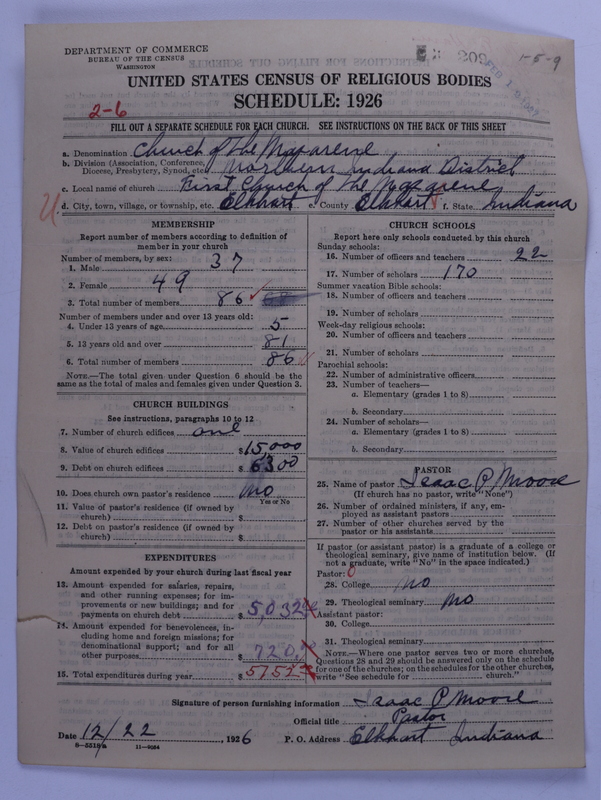 DEPARTMENT OF COMMERCE
BUREAU OF THE CENSUS
WASHINGTON
1-5-9
UNITED STATES CENSUS OF RELIGIOUS BODIES
SCHEDULE: 1926
2-6
FILL OUT A SEPARATE SCHEDULE FOR EACH CHURCH. SEE INSTRUCTIONS ON THE BACK OF THIS SHEET
a. Denomination Church of the Nazarene
b. Division (Association, Conference, Diocese, Presbytery, Synod, etc.) Northern Indiana District
c. Local name of church First Church of the Nazarene
d. City, town, village, or township, etc. Elkhart e. County Elkhart f. State Indiana
MEMBERSHIP
Report number of members according to definition of
member in your church
Number of members, by sex:
1. Male 37
2. Female 49
3. Total number of members 86
Number of members under and over 13 years old:
4. Under 13 years of age 5
5. 13 years old and over 81
6. Total number of members 86
NOTE.—The total given under Question 6 should be the
same as the total of males and females given under Question 3.
CHURCH BUILDINGS
See instructions, paragraphs 10 to 12
7. Number of church edifices one
8. Value of church edifices $15,000
9. Debt on church edifices $6300
10. Does church own pastor's residence no
Yes or No
11. Value of pastor's residence (if owned by
church) $
12. Debt on pastor's residence (if owned by
church) $
EXPENDITURES
Amount expended by your church during last fiscal year
13. Amount expended for salaries, repairs,
and other running expenses; for im-
provements or new buildings; and for
payments on church debt $5,032
14. Amount expended for benevolences, in-
cluding home and foreign missions; for
denominational support; and for all
other purposes $720
15. Total expenditures during year $
CHURCH SCHOOLS
Report here only schools conducted by this church
Sunday schools:
16. Number of officers and teachers 22
17. Number of scholars 170
Summer vacation Bible schools:
18. Number of officers and teachers
19. Number of scholars
Week-day religious schools:
20. Number of officers and teachers
21. Number of scholars
Parochial schools:
22. Number of administrative officers
23. Number of teachers—
a. Elementary (grades 1 to 8)
b. Secondary
24. Number of scholars—
a. Elementary (grades 1 to 8)
b. Secondary
PASTOR
25. Name of pastor Isaac P Moore
(If church has no pastor, write "None")
26. Number of ordained ministers, if any, em-
ployed as assistant pastors
27. Number of other churches served by the
pastor or his assistants
If pastor (or assistant pastor) is a graduate of a college or
theological seminary, give name of institution below. (If
not a graduate, write "No" in the space indicated.)
Pastor: 0
28. College no
29. Theological seminary no
Assistant pastor:
30. College
31. Theological seminary
NOTE.—Where one pastor serves two or more churches,
Questions 28 and 29 should be answered only on the schedule
for one of the churches; on the schedules for the other churches,
write "See schedule for church."
Signature of person furnishing information Isaac P Moore
Official title Pastor
Date 12/22, 1926 P. O. Address Elkhart Indiana
11-9064